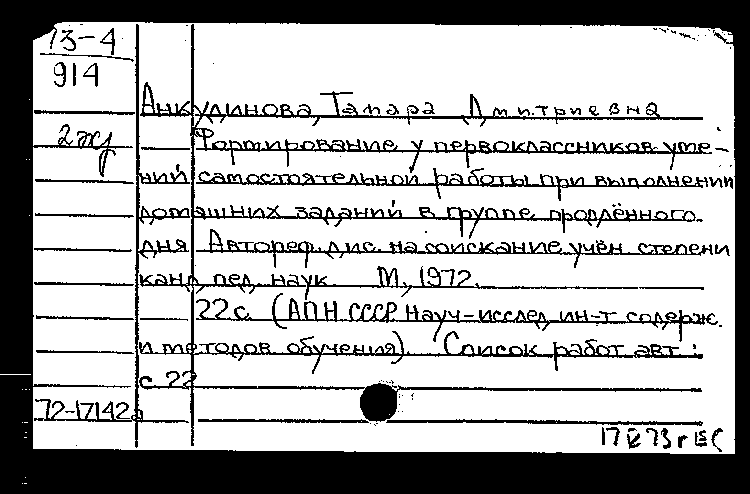 73-4
914
Анкудинова, Тамара Дмитриевна
2 экз
Формирование у первоклассников уме-
ний самостоятельной работы при выполнении
домашних заданий в группе продлённого
дня Автореф. дис. на соискание учён. степени
канд. пед. наук. М., 1972.
22 с. (АПН СССР. Науч-исслед. ин-т содерж.
и методов обучения). Список работ авт.:
с. 22
72-17142а
17 73 г